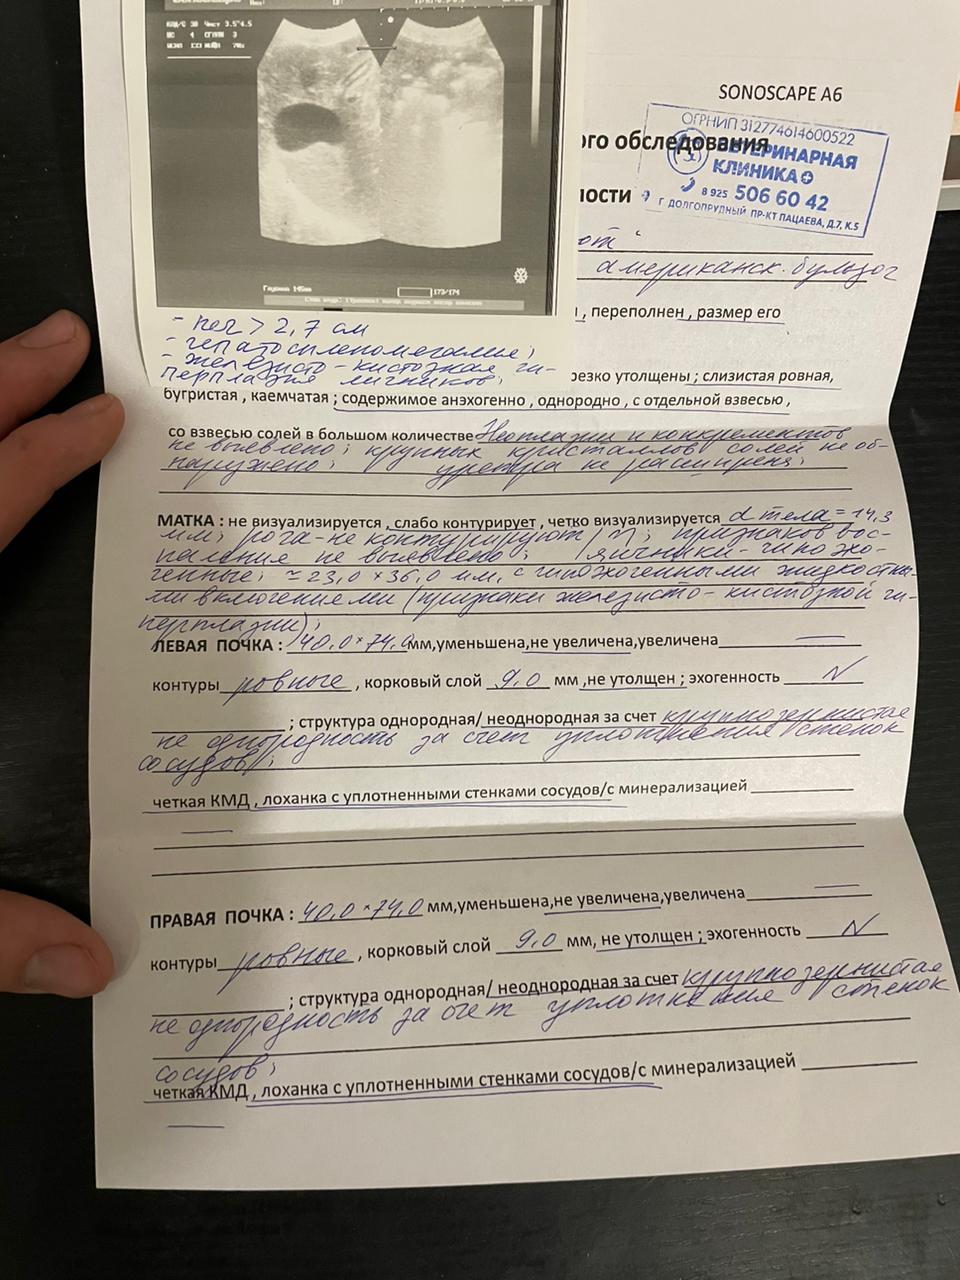 КЛД/С 30 Част 3.5~4.5
SONOSCAPE A6
ОГРНИП 312774614600522
ого обследования
ВЕТЕРИНАРНАЯ
КЛИНИКА
8 925 506 60 42
Г. ДОЛГОПРУДНЫЙ ПР-КТ ПАЦАЕВА, Д.7, К.5
ности
американск. бульдог
, переполнен , размер его
Глубина 145мм 173/174
- печ > 2,7 см
- гепатоспленомегалия;
- железисто-кистозная ги-
перплазия яичников;
резко утолщены ; слизистая ровная,
бугристая , каемчатая ; содержимое анэхогенно , однородно , с отдельной взвесью ,
со взвесью солей в большом количестве Неоплазии и конкрементов
не выявлено; крупных кристаллов солей не об-
наружено; уретра не расширена;
МАТКА : не визуализируется , слабо контурирует , четко визуализируется d тела = 14,3
мм; рога-не контурируют /N; признаков вос-
паление не выявлено; яичники-гипоэхо-
генные; ≈ 23,0 × 36,0 мм, с гипоэхогенными жидкостны-
ми включениями (признаки железисто-кистозной ги-
перплазии);
ЛЕВАЯ ПОЧКА : 40,0 × 74,0 мм,уменьшена,не увеличена,увеличена
контуры ровные , корковый слой 9,0 мм ,не утолщен ; эхогенность N
; структура однородная/ неоднородная за счет крупнозернистая
не однородность за счет уплотнения стенок
сосудов;
четкая КМД , лоханка с уплотненными стенками сосудов/с минерализацией
ПРАВАЯ ПОЧКА : 40,0 × 74,0 мм,уменьшена,не увеличена,увеличена
контуры ровные , корковый слой 9,0 мм, не утолщен ; эхогенность N
; структура однородная/ неоднородная за счет крупнозернистая
не однородность за счет уплотнения стенок
сосудов;
четкая КМД , лоханка с уплотненными стенками сосудов/с минерализацией